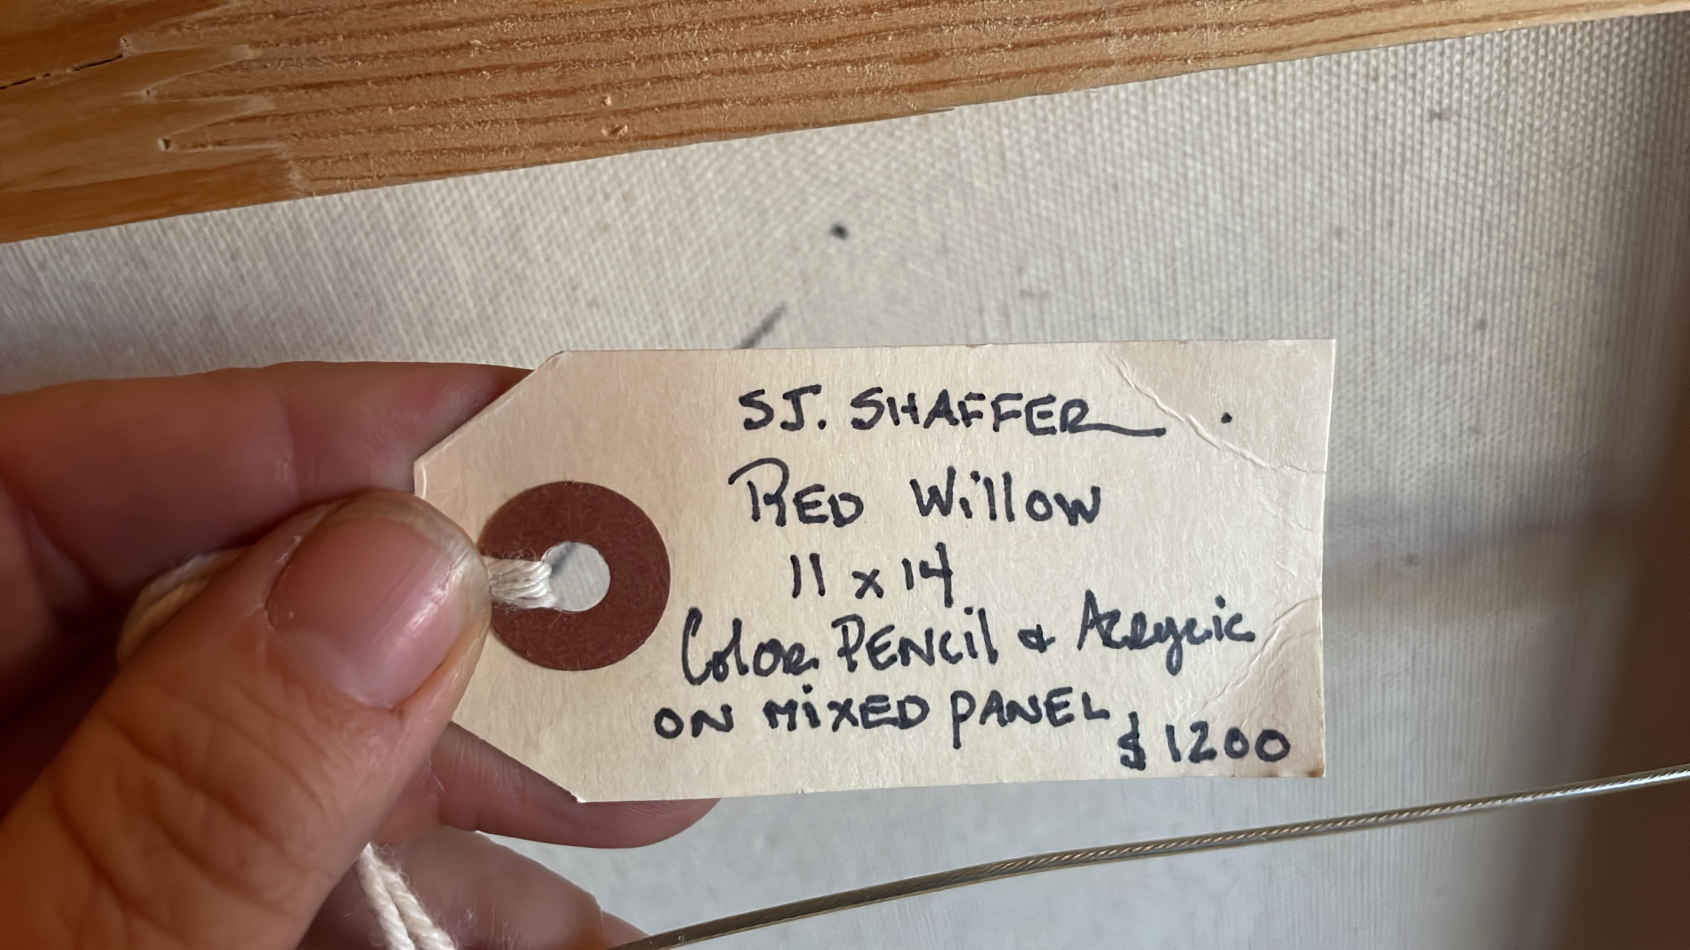 SJ. SHAFFER
RED Willow
11 x 14
Color PENCil & Acrylic
ON MiXED PANEL
$1200